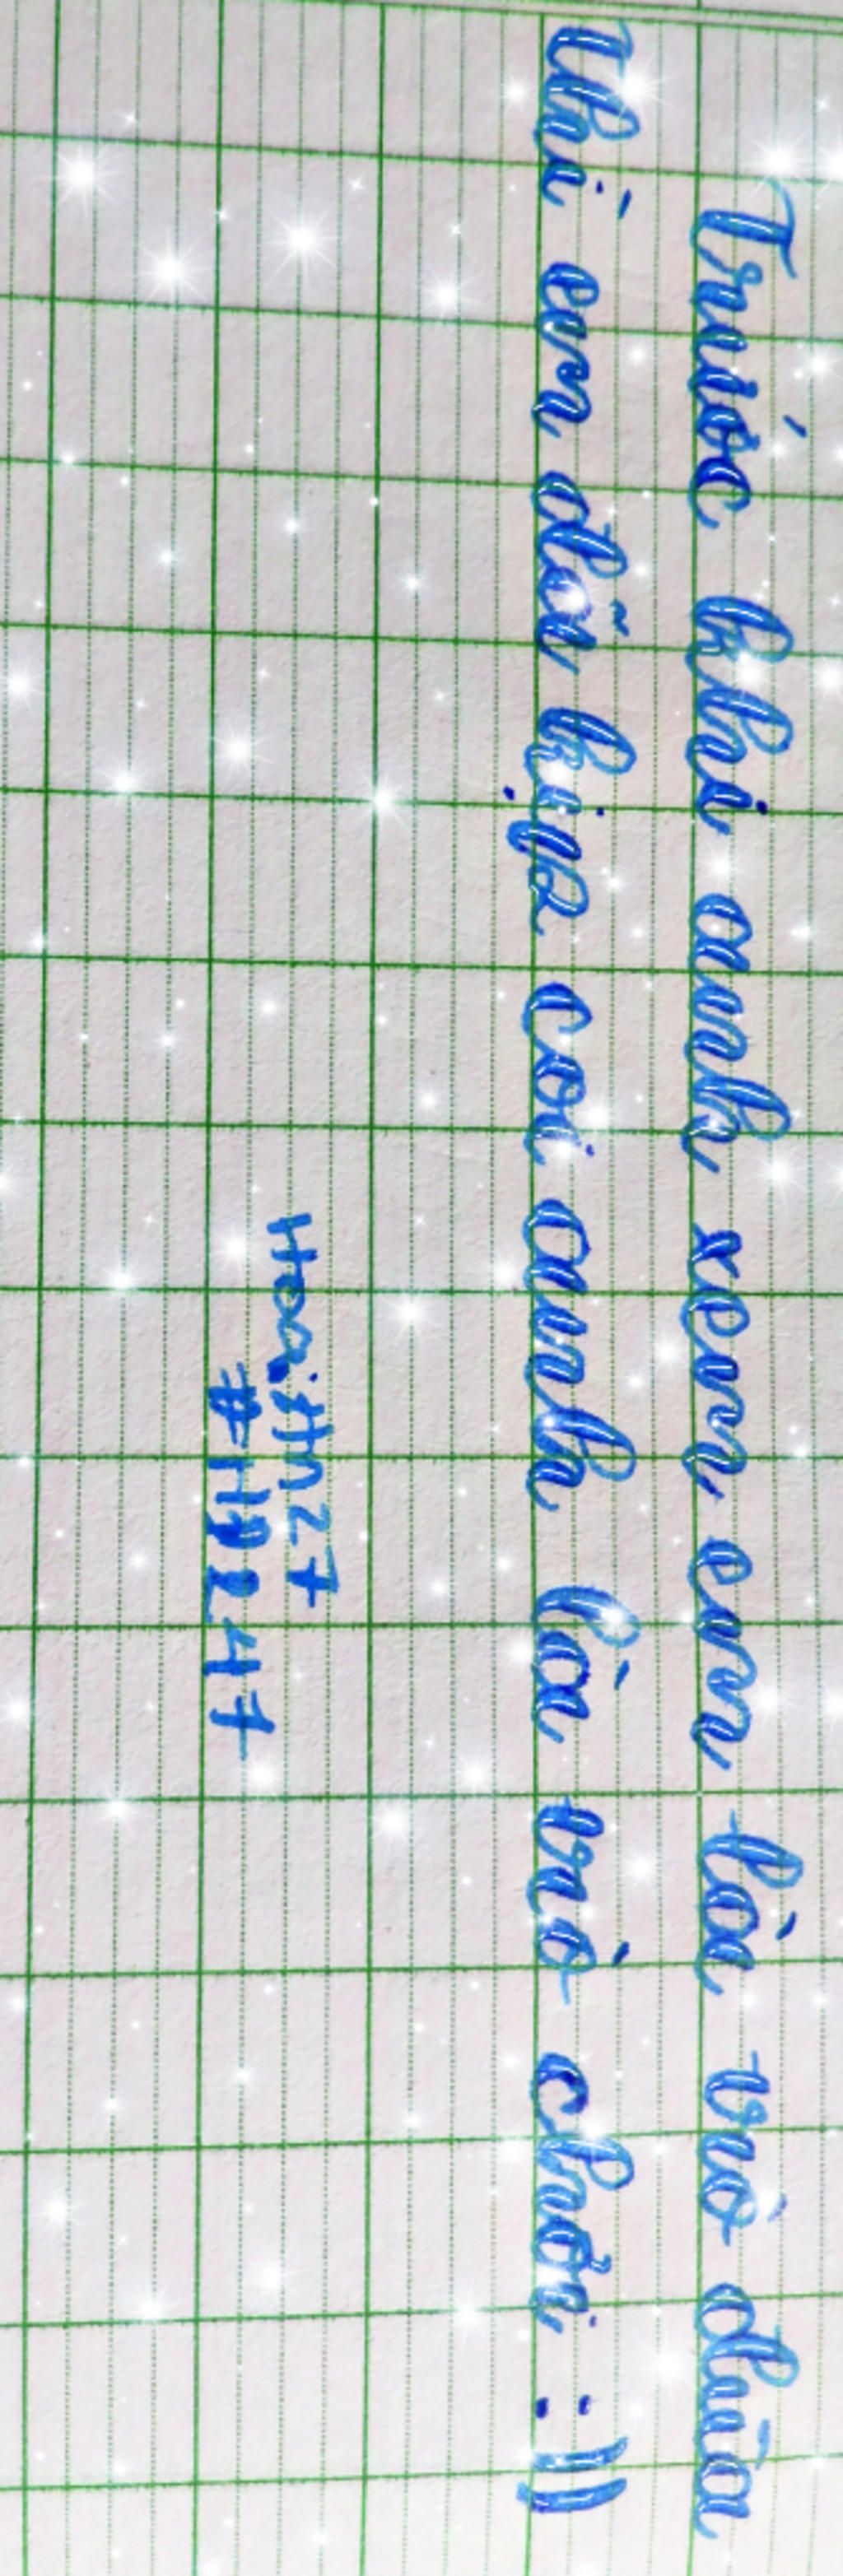 Trước khi anh xem em là trò đùa
Thì em đã kịp coi anh là trò chơi :))